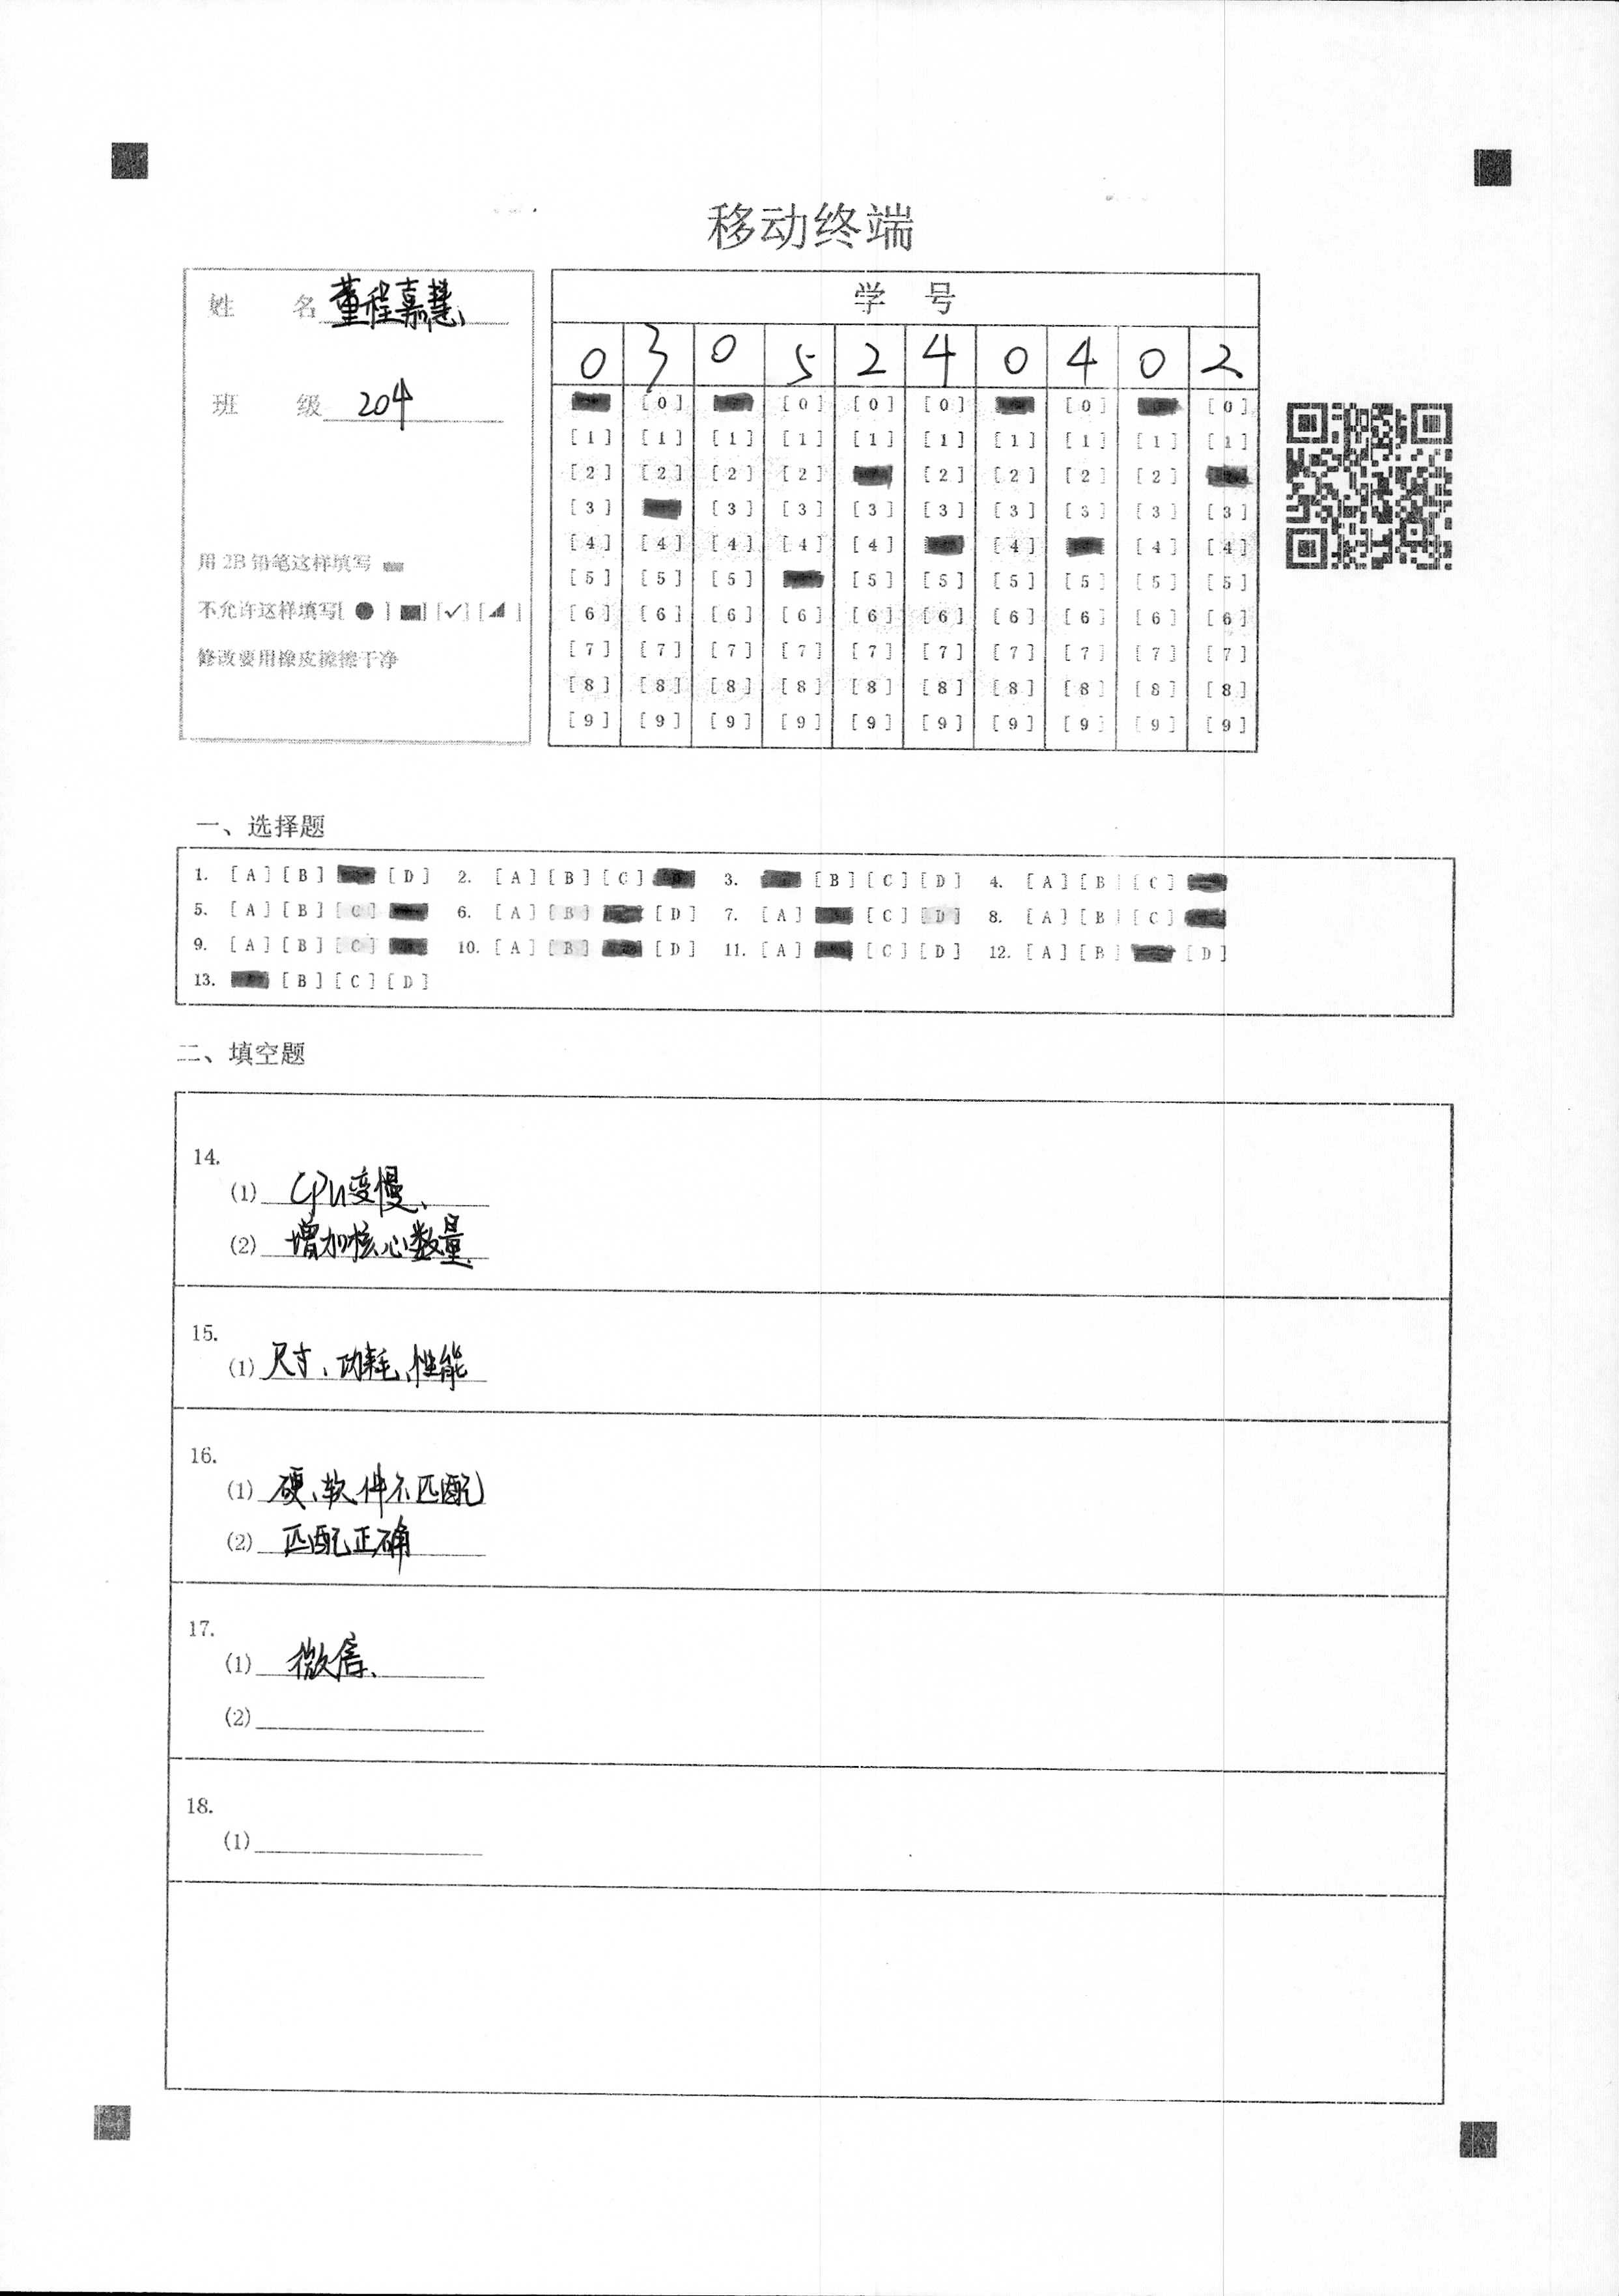 移动终端
姓 名 董程嘉慧
班 级 204
用 2B 铅笔这样填写
不允许这样填写[ ● ] [■] [✓] [◢ ]
修改要用橡皮擦擦干净
学 号
0 3 0 5 2 4 0 4 0 2
[0] [0] [0] [0] [0] [0]
[1] [1] [1] [1] [1] [1] [1] [1] [1] [1]
[2] [2] [2] [2] [2] [2] [2] [2]
[3] [3] [3] [3] [3] [3] [3] [3] [3]
[4] [4] [4] [4] [4] [4] [4] [4]
[5] [5] [5] [5] [5] [5] [5] [5] [5]
[6] [6] [6] [6] [6] [6] [6] [6] [6] [6]
[7] [7] [7] [7] [7] [7] [7] [7] [7] [7]
[8] [8] [8] [8] [8] [8] [8] [8] [8] [8]
[9] [9] [9] [9] [9] [9] [9] [9] [9] [9]
一、选择题
1. [A] [B] [D] 2. [A] [B] [C] 3. [B] [C] [D] 4. [A] [B] [C]
5. [A] [B] [C] 6. [A] [B] [D] 7. [A] [C] [D] 8. [A] [B] [C]
9. [A] [B] [C] 10. [A] [B] [D] 11. [A] [C] [D] 12. [A] [B] [D]
13. [B] [C] [D]
二、填空题
14.
(1) CPU变慢、
(2) 增加核心数量
15.
(1) 尺寸、功耗、性能
16.
(1) 硬、软件不匹配
(2) 匹配正确
17.
(1) 微信、
(2)
18.
(1)